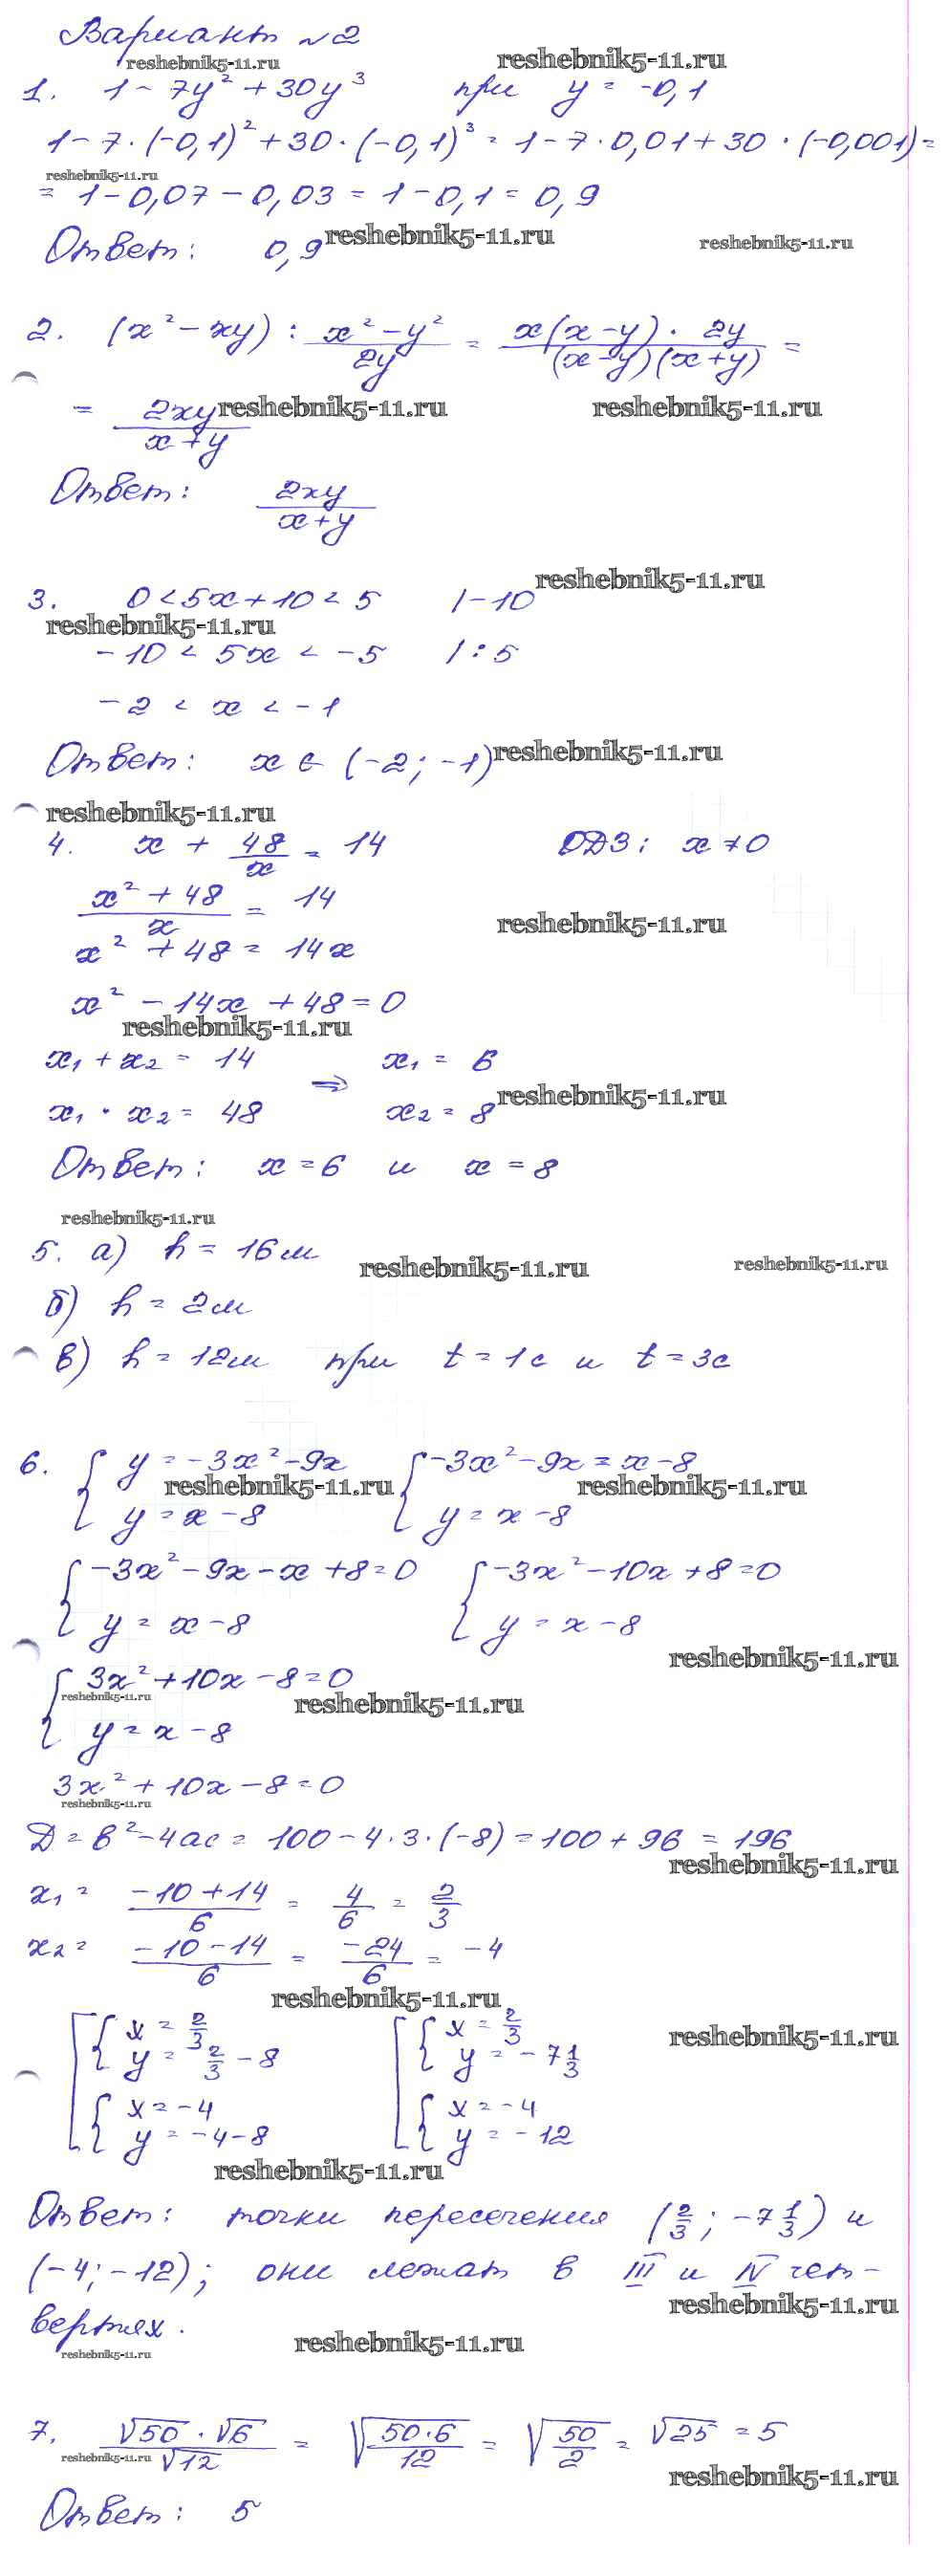 Вариант №2
reshebnik5-11.ru reshebnik5-11.ru
1. 1 - 7y² + 30y³ при y = -0,1
1 - 7 · (-0,1)² + 30 · (-0,1)³ = 1 - 7 · 0,01 + 30 · (-0,001) =
reshebnik5-11.ru
= 1 - 0,07 - 0,03 = 1 - 0,1 = 0,9
Ответ: 0,9 reshebnik5-11.ru reshebnik5-11.ru
2. (x² - xy) : (x² - y²)/2y = x(x-y) · 2y/(x-y)(x+y) =
= 2xy/x+y reshebnik5-11.ru reshebnik5-11.ru
Ответ: 2xy/x+y
reshebnik5-11.ru
3. 0 < 5x + 10 < 5 | -10
reshebnik5-11.ru
-10 < 5x < -5 | : 5
-2 < x < -1
Ответ: x ∈ (-2; -1) reshebnik5-11.ru
reshebnik5-11.ru
4. x + 48/x = 14 ОДЗ: x ≠ 0
x² + 48/x = 14
reshebnik5-11.ru
x² + 48 = 14x
x² - 14x + 48 = 0
reshebnik5-11.ru
x₁ + x₂ = 14 ⇒ x₁ = 6
x₁ · x₂ = 48 x₂ = 8 reshebnik5-11.ru
Ответ: x = 6 и x = 8
reshebnik5-11.ru
5. а) h = 16м
reshebnik5-11.ru reshebnik5-11.ru
б) h = 2м
в) h = 12м при t = 1с и t = 3с
6. { y = -3x² - 9x { -3x² - 9x = x - 8
reshebnik5-11.ru reshebnik5-11.ru
y = x - 8 y = x - 8
{ -3x² - 9x - x + 8 = 0 { -3x² - 10x + 8 = 0
y = x - 8 y = x - 8
reshebnik5-11.ru
{ 3x² + 10x - 8 = 0
reshebnik5-11.ru reshebnik5-11.ru
y = x - 8
3x² + 10x - 8 = 0
reshebnik5-11.ru
Д = в² - 4ас = 100 - 4 · 3 · (-8) = 100 + 96 = 196
reshebnik5-11.ru
x₁ = -10 + 14/6 = 4/6 = 2/3
x₂ = -10 - 14/6 = -24/6 = -4
reshebnik5-11.ru
[ { x = 2/3 [ { x = 2/3
reshebnik5-11.ru
y = 2/3 - 8 y = -7 1/3
{ x = -4 { x = -4
y = -4 - 8 y = -12
reshebnik5-11.ru
Ответ: точки пересечения (2/3; -7 1/3) и
(-4; -12); они лежат в III и IV чет-
reshebnik5-11.ru
вертях.
reshebnik5-11.ru reshebnik5-11.ru
7. √50 · √6/√12 = √(50·6/12) = √(50/2) = √25 = 5
reshebnik5-11.ru reshebnik5-11.ru
Ответ: 5